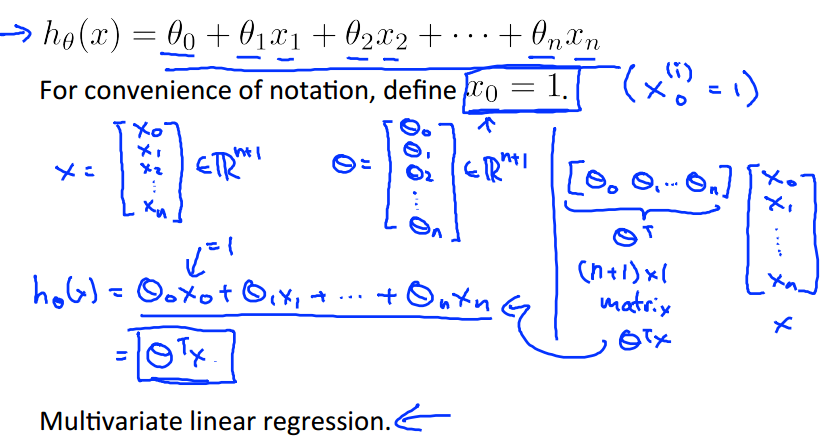 → hθ(x) = θ₀ + θ₁x₁ + θ₂x₂ + ⋯ + θₙxₙ
For convenience of notation, define x₀ = 1. (x₀⁽ⁱ⁾ = 1)
x = [x₀ x₁ x₂ ⋮ xₙ] ∈ ℝⁿ⁺¹ θ = [θ₀ θ₁ θ₂ ⋮ θₙ] ∈ ℝⁿ⁺¹
[θ₀ θ₁ ⋯ θₙ] [x₀ x₁ ⋮ xₙ]
θᵀ
(n+1) × 1
matrix
θᵀx
x
= 1
hθ(x) = θ₀x₀ + θ₁x₁ + ⋯ + θₙxₙ
= θᵀx.
Multivariate linear regression. ←